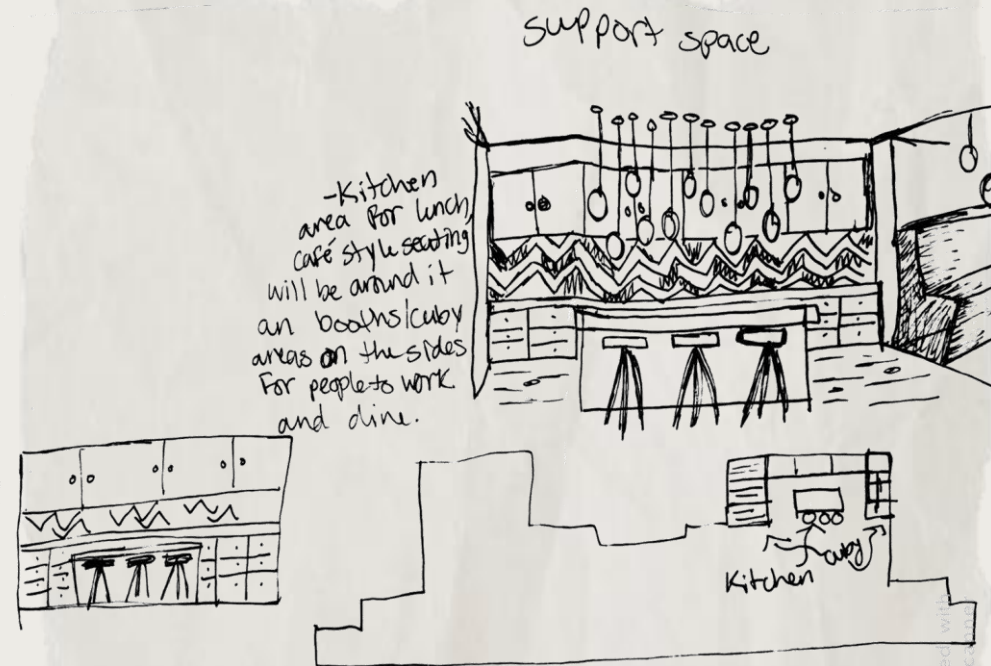 support space
-Kitchen
area for lunch,
café style seating
will be around it
an booths/cuby
areas on the sides
For people to work
and dine.
cuby
Kitchen